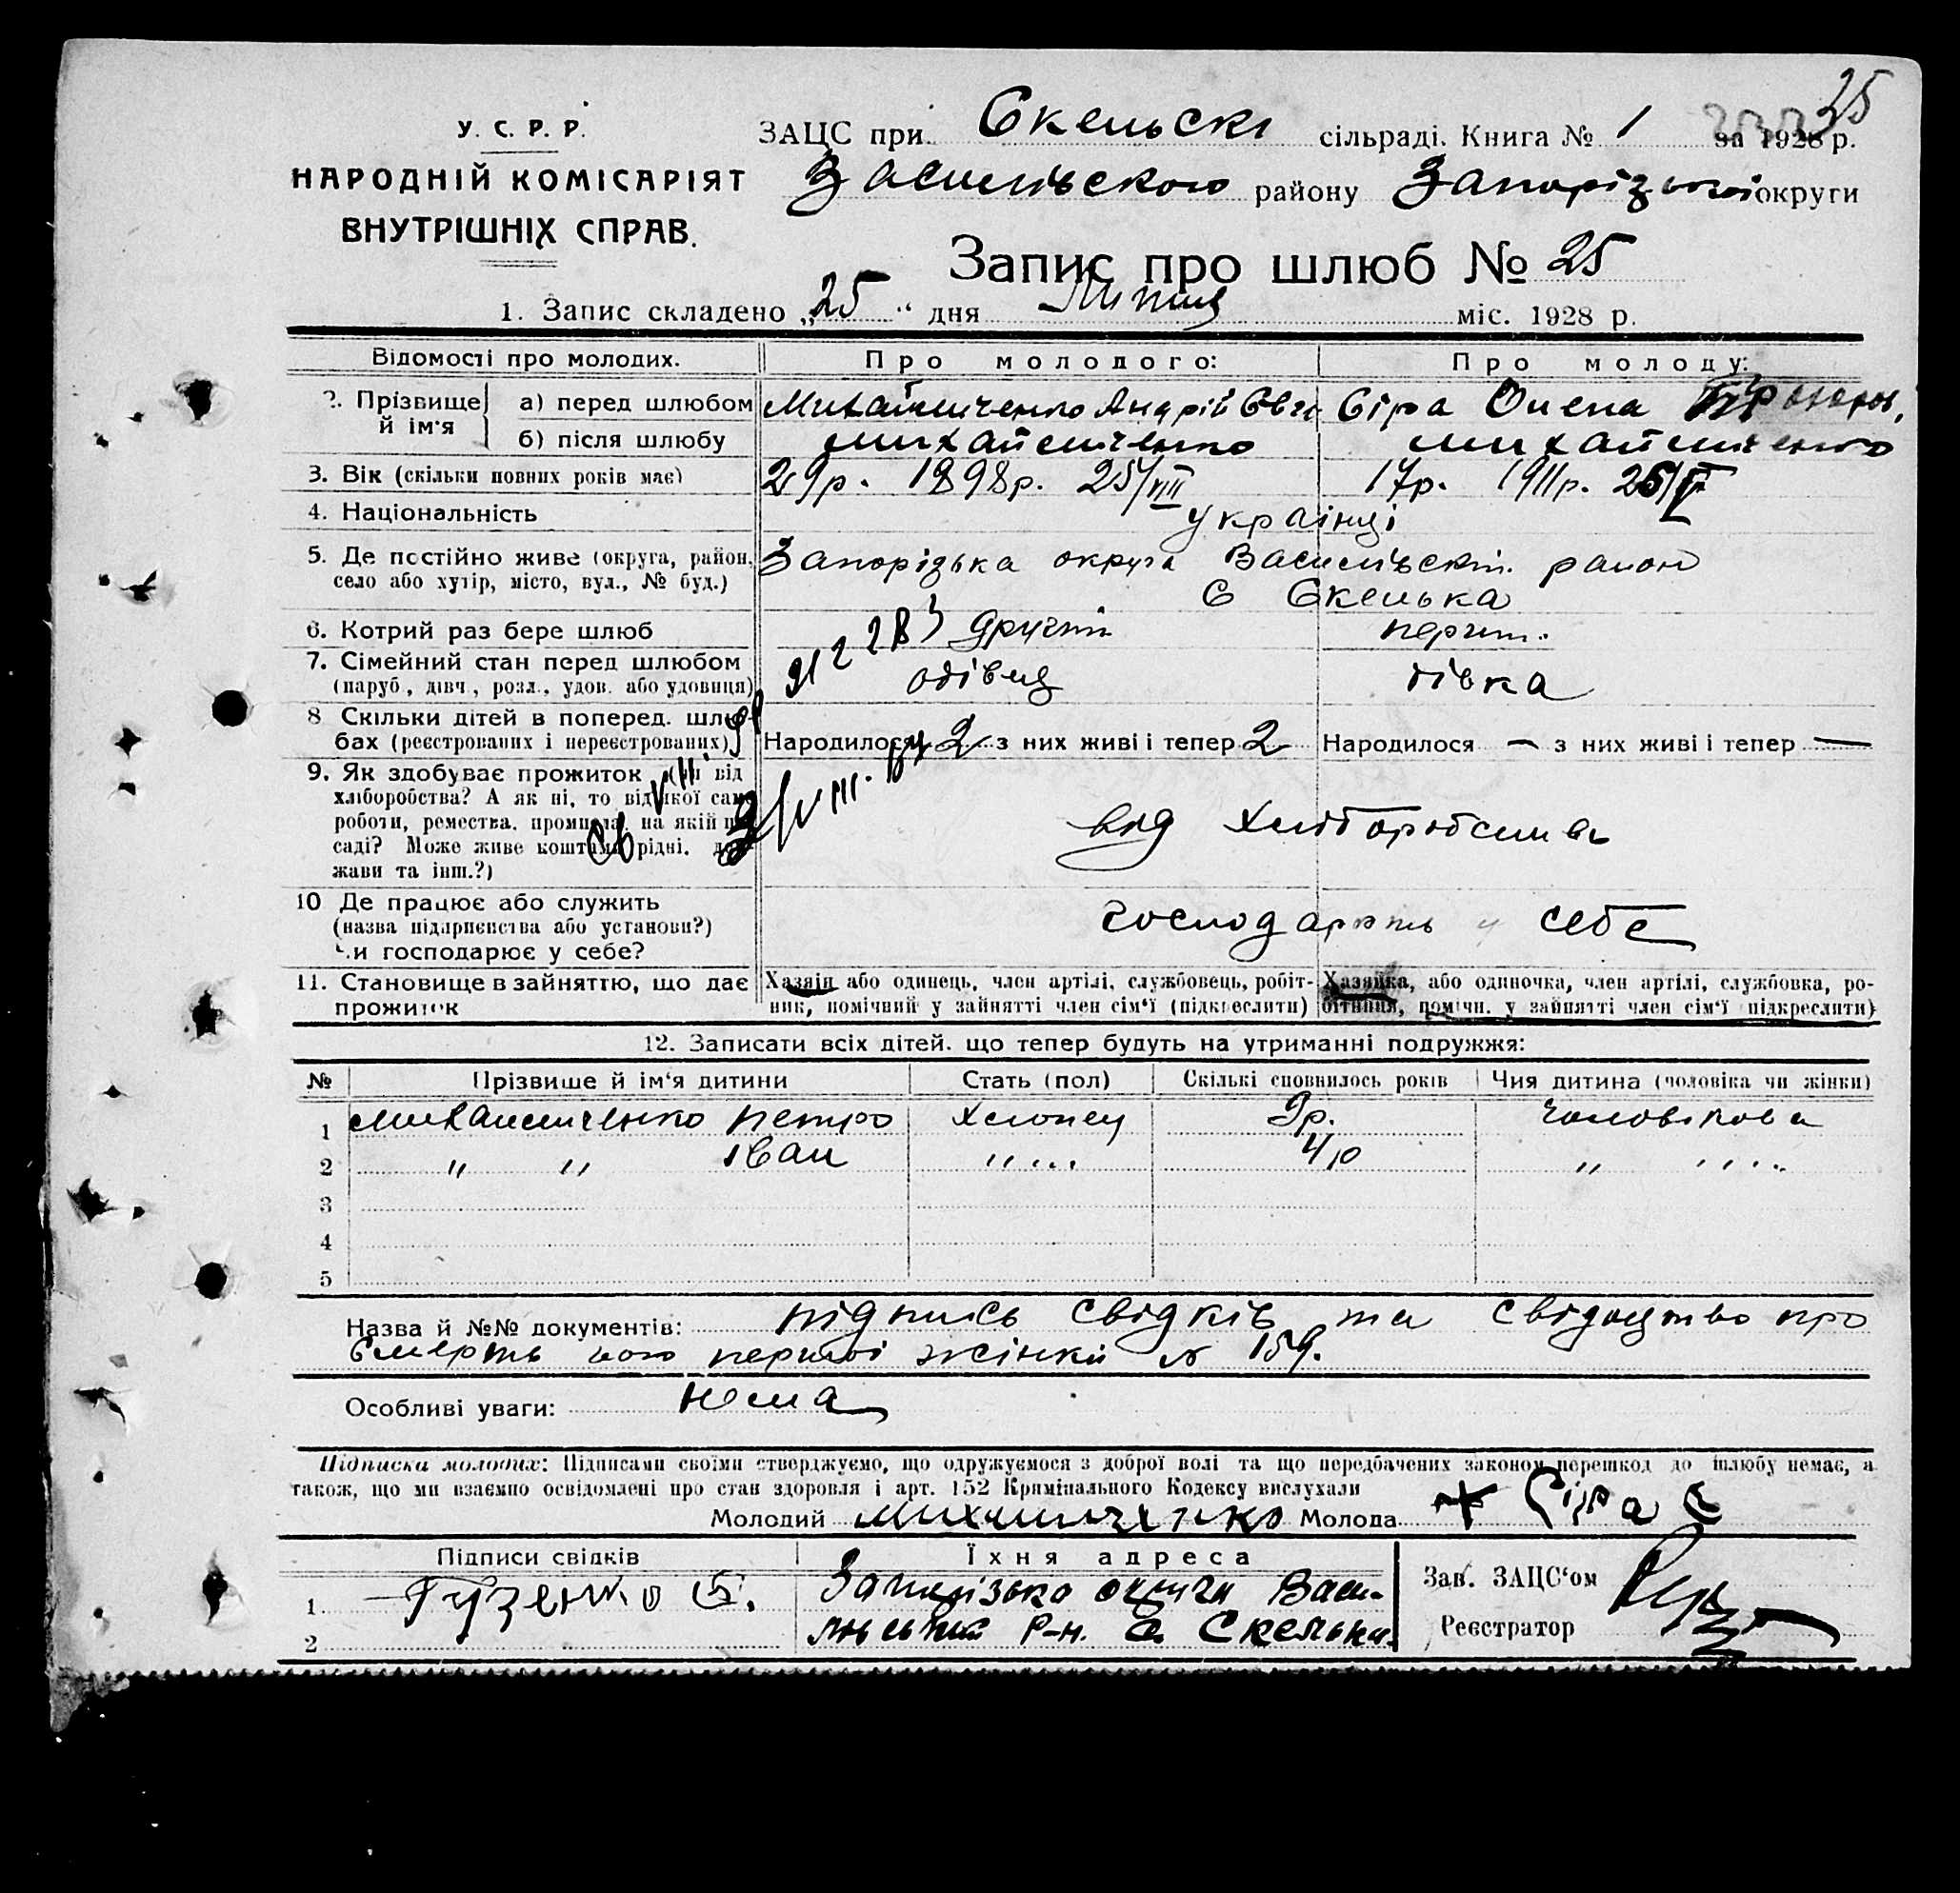 25
У. С. Р. Р.
НАРОДНІЙ КОМІСАРІЯТ
ВНУТРІШНІХ СПРАВ.
ЗАЦС при Скельскі сільраді. Книга № 1 за 1928 р.
Василівского району Запорізької округи
Запис про шлюб № 25
1. Запис складено „25" дня Липня міс. 1928 р.
Відомості про молодих. Про молодого: Про молоду:
2. Прізвище й ім'я а) перед шлюбом Михайличенко Андрій Євг Сіра Олена
б) після шлюбу михайличенко михайличенко
3. Вік (скільки повних років має) 29р. 1898р. 25/VIII 17р. 1911р. 26/V
4. Національність українці
5. Де постійно живе (округа, район, Запорізька округа Василівский район
село або хутір, місто, вул., № буд.) С Скелька
6. Котрий раз бере шлюб другий перший.
7. Сімейний стан перед шлюбом
(паруб., дівч., розл., удов. або удовиця) одівец дівка
8 Скільки дітей в поперед. шлю-
бах (реєстрованих і нереєстрованих) Народилося 2 з них живі і тепер 2 Народилося — з них живі і тепер —
9. Як здобуває прожиток від
хліборобства? А як ні, то від якої само
роботи, ремества, промисла, на якій по
саді? Може живе коштами рідні, дер
жави та інш.?) від Хліборобства
10 Де працює або служить
(назва підприємства або установи?) господарють у себе
Чи господарює у себе?
11. Становище в зайняттю, що дає Хазяїн або одинець, член артілі, службовець, робіт- Хазяйка, або одиночка, член артілі, службовка, ро-
прожиток ник, помічний у зайнятті член сім'ї (підкреслити) бітниця, помічн. у зайнятті член сім'ї (підкреслити)
12. Записати всіх дітей, що тепер будуть на утриманні подружжя:
№ Прізвище й ім'я дитини Стать (пол) Скількі сповнилось років Чия дитина (чоловіка чи жінки)
1 Михайличенко Петро Хлопец 9р. чоловікова
2 " " Іван " 4р " "
3
4
5
Назва й №№ документів: підпись свідків та свідоцтво про
Смерть його першої жінки № 159.
Особливі уваги: нема
Підписка молодих: Підписами своїми стверджуємо, що одружуємося з доброї волі та що передбачених законом перешкод до шлюбу немає, а
також, що ми взаємно освідомлені про стан здоровля і арт. 152 Кримінального Кодексу вислухали
Молодий Молода + Сіра Є
Підписи свідків Їхня адреса Зав. ЗАЦС'ом
1 Гузенко Запорізька округа Васи-
2 лівський Р-н. С. Скелька. Реєстратор